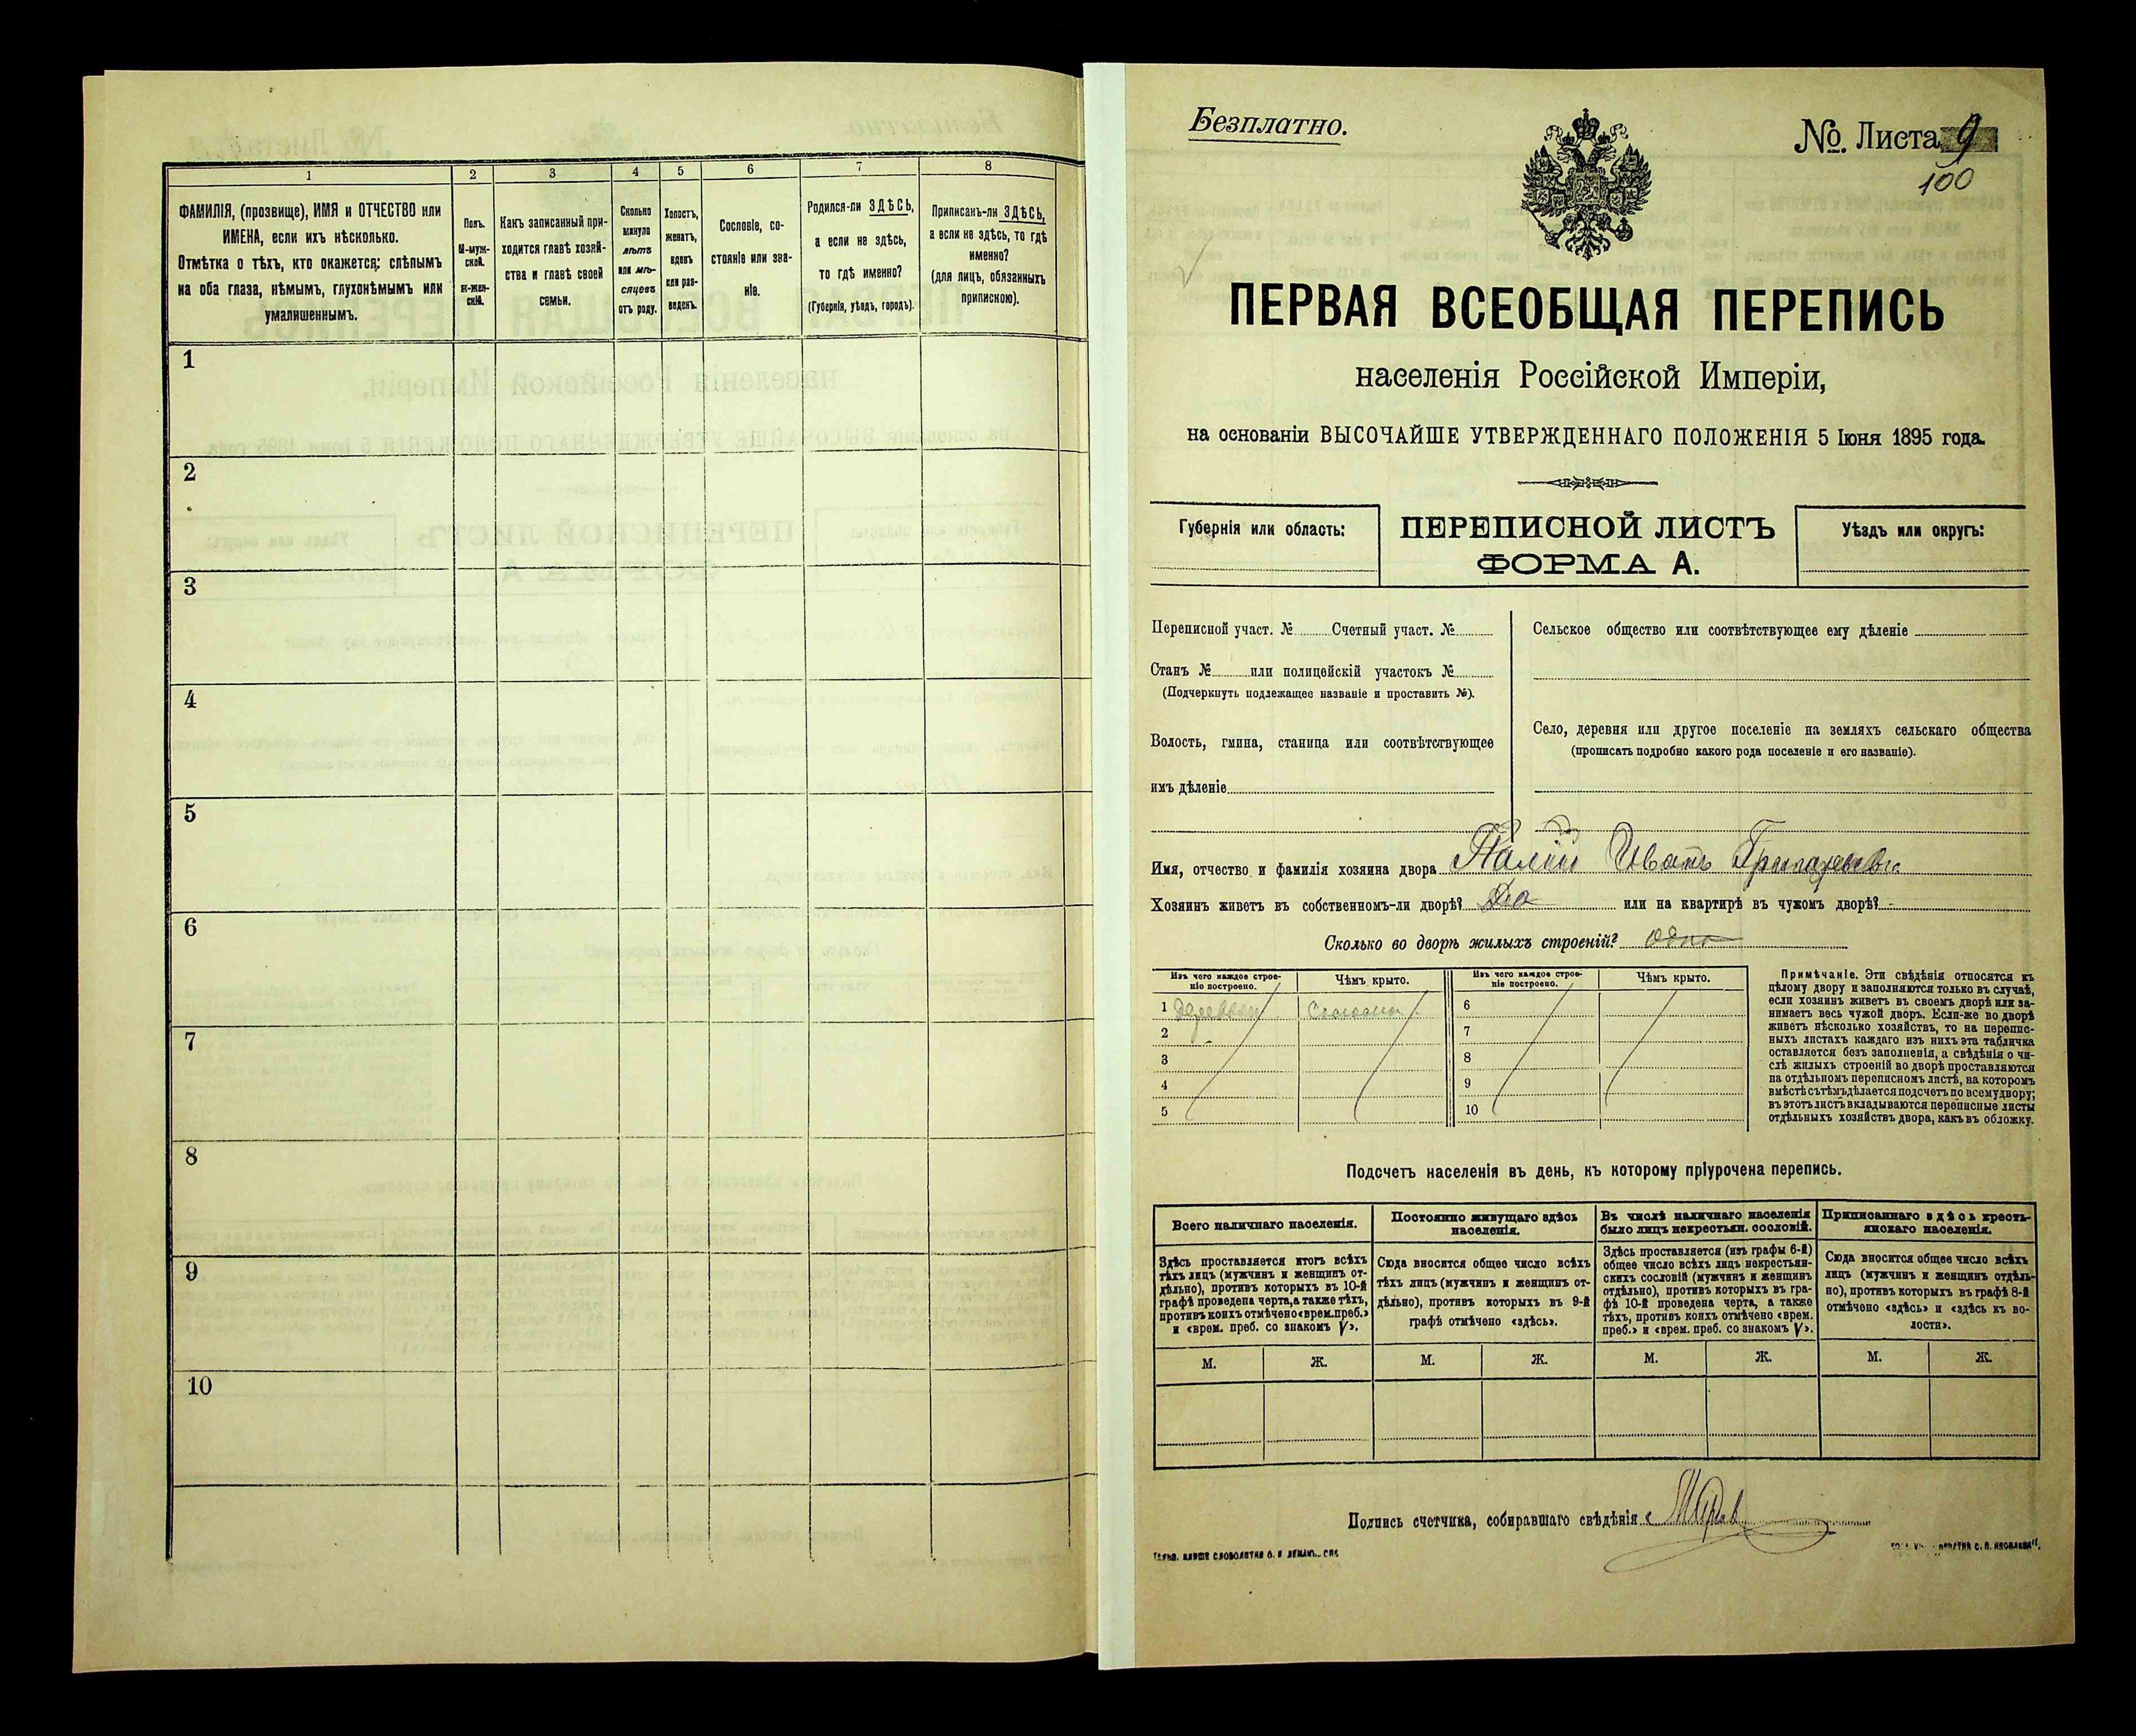 1
2
3
4
5
6
7
8
ФАМИЛІЯ, (прозвище), ИМЯ и ОТЧЕСТВО или
ИМЕНА, если ихъ нѣсколько.
Отмѣтка о тѣхъ, кто окажется: слѣпымъ
на оба глаза, нѣмымъ, глухонѣмымъ или
умалишеннымъ.
Полъ.
М-муж-
ской.
ж-жен-
скій.
Какъ записанный при-
ходится главѣ хозяй-
ства и главѣ своей
семьи.
Сколько
минуло
лѣтъ
или мѣ-
сяцевъ
отъ роду.
Холостъ,
женатъ,
вдовъ
или раз-
веденъ.
Сословіе, со-
стояніе или зва-
ніе.
Родился-ли ЗДѢСЬ,
а если не здѣсь,
то гдѣ именно?
(Губернія, уѣздъ, городъ).
Приписанъ-ли ЗДѢСЬ,
а если не здѣсь, то гдѣ
именно?
(для лицъ, обязанныхъ
припискою).
1
2
3
4
5
6
7
8
9
10
Безплатно.
№. Листа 9
100
ПЕРВАЯ ВСЕОБЩАЯ ПЕРЕПИСЬ
населенія Россійской Имперіи,
на основаніи ВЫСОЧАЙШЕ УТВЕРЖДЕННАГО ПОЛОЖЕНІЯ 5 Іюня 1895 года.
Губернія или область:
ПЕРЕПИСНОЙ ЛИСТЪ
ФОРМА А.
Уѣздъ или округъ:
Переписной участ. № Счетный участ. №
Станъ № или полицейскій участокъ №
(Подчеркнуть подлежащее названіе и проставить №).
Волость, гмина, станица или соотвѣтствующее
имъ дѣленіе
Сельское общество или соотвѣтствующее ему дѣленіе
Село, деревня или другое поселеніе на земляхъ сельскаго общества
(прописать подробно какого рода поселеніе и его названіе).
Имя, отчество и фамилія хозяина двора Палій Иванъ
Хозяинъ живетъ въ собственномъ-ли дворѣ? Да или на квартирѣ въ чужомъ дворѣ? -
Сколько во дворѣ жилыхъ строеній? одно
Изъ чего каждое строе-
ніе построено.
Чѣмъ крыто.
Изъ чего каждое строе-
ніе построено.
Чѣмъ крыто.
1 деревян. Соломы
2
3
4
5
6
7
8
9
10
Примѣчаніе. Эти свѣдѣнія относятся къ
цѣлому двору и заполняются только въ случаѣ,
если хозяинъ живетъ въ своемъ дворѣ или за-
нимаетъ весь чужой дворъ. Если-же во дворѣ
живетъ нѣсколько хозяйствъ, то на перепис-
ныхъ листахъ каждаго изъ нихъ эта табличка
оставляется безъ заполненія, а свѣдѣнія о чи-
слѣ жилыхъ строеній во дворѣ проставляются
на отдѣльномъ переписномъ листѣ, на которомъ
вмѣстѣ съ тѣмъ дѣлается подсчетъ по всему двору;
въ этотъ листъ вкладываются переписные листы
отдѣльныхъ хозяйствъ двора, какъ въ обложку.
Подсчетъ населенія въ день, къ которому пріурочена перепись.
Всего наличнаго населенія.
Постоянно живущаго здѣсь
населенія.
Въ числѣ наличнаго населенія
было лицъ некрестьян. сословій.
Приписаннаго здѣсь кресть-
янскаго населенія.
Здѣсь проставляется итогъ всѣхъ
тѣхъ лицъ (мужчинъ и женщинъ от-
дѣльно), противъ которыхъ въ 10-й
графѣ проведена черта, а также тѣхъ,
противъ коихъ отмѣчено «врем. преб.»
и «врем. преб. со знакомъ V».
Сюда вносится общее число всѣхъ
тѣхъ лицъ (мужчинъ и женщинъ от-
дѣльно), противъ которыхъ въ 9-й
графѣ отмѣчено «здѣсь».
Здѣсь проставляется (изъ графы 6-й)
общее число всѣхъ лицъ некрестьян-
скихъ сословій (мужчинъ и женщинъ
отдѣльно), противъ которыхъ въ гра-
фѣ 10-й проведена черта, а также
тѣхъ, противъ коихъ отмѣчено «врем.
преб.» и «врем. преб. со знакомъ V».
Сюда вносится общее число всѣхъ
лицъ (мужчинъ и женщинъ отдѣль-
но), противъ которыхъ въ графѣ 8-й
отмѣчено «здѣсь» и «здѣсь къ во-
лости».
М. Ж. М. Ж. М. Ж. М. Ж.
Подпись счетчика, собиравшаго свѣдѣнія